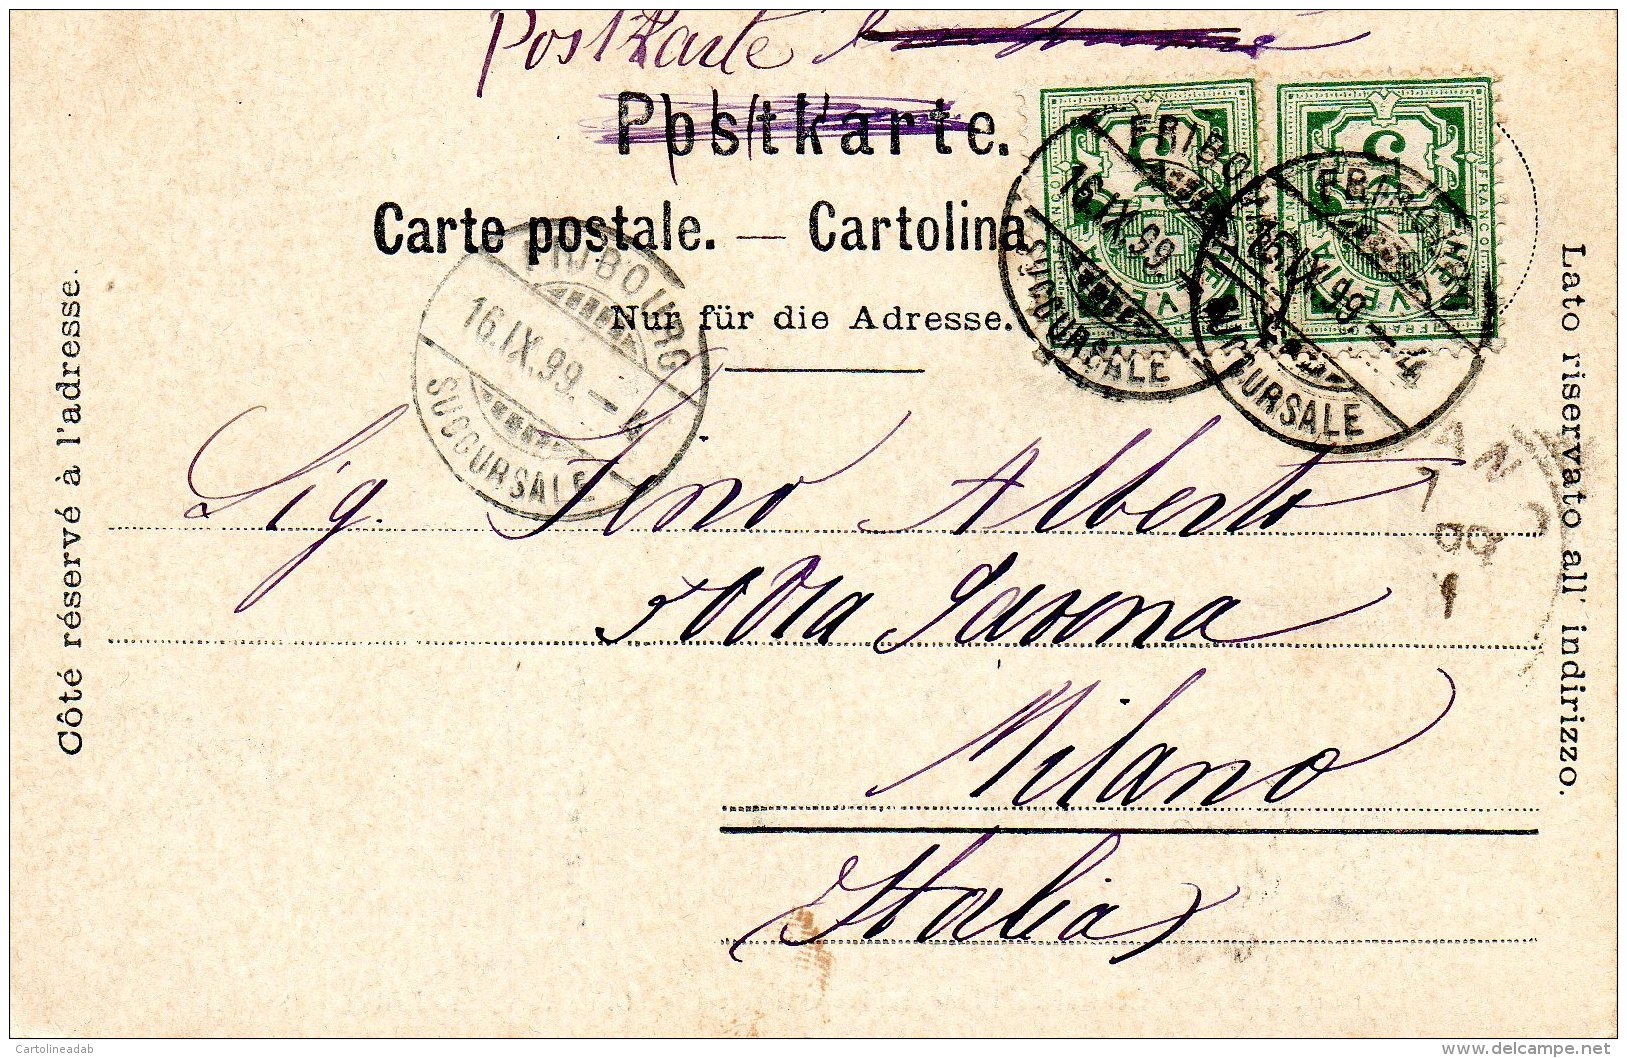 PostKarte
Postkarte.
Carte postale. — Cartolina
Nur für die Adresse.
Côté réservé à l'adresse.
Lato riservato all' indirizzo.
FRIBOURG
16.IX.99.-4
SUCCURSALE
FRIBOURG
16.IX.99.-4
SUCCURSALE
FRIBOURG
16.IX.99.-4
SUCCURSALE
5
5
FRANCO
FRANCO
HELVETIA
HELVETIA
Sig. Feno Alberto
Savona
Milano
Italia
Cartolineadab
delcampe.net